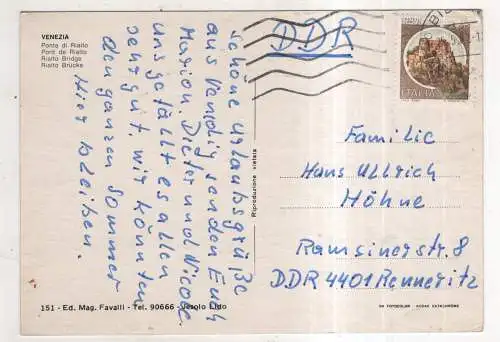 VENEZIA
Ponte di Rialto
Pont de Rialto
Rialto Bridge
Rialto Brücke
Schöne Urlaubsgrüße
aus Venedig senden Euch
Marion, Dieter und Nicole
uns gefällt es allen
sehr gut, wir könnten
den ganzen Sommer
hier bleiben.
151 - Ed. Mag. Favalli - Tel. 90666 - Jesolo Lido
Riproduzione vietata
DDR
ITALIA
Familie
Hans Ullrich
Höhne
Ramsinerstr. 8
DDR 4401 Renneritz
KODAK EKTACHROME